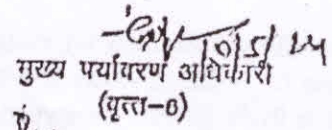 10/5/24
मुख्य पर्यावरण अधिकारी
(वृत्त-6)